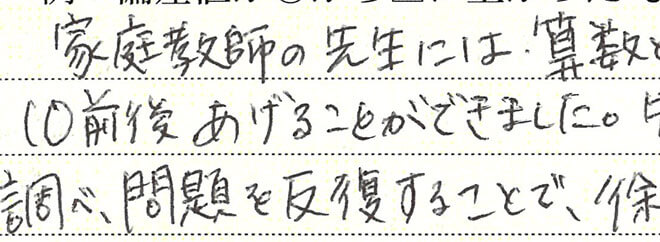 家庭教師の先生には、算数と
10前後あげることができました。
調べ、問題を反復することで、徐